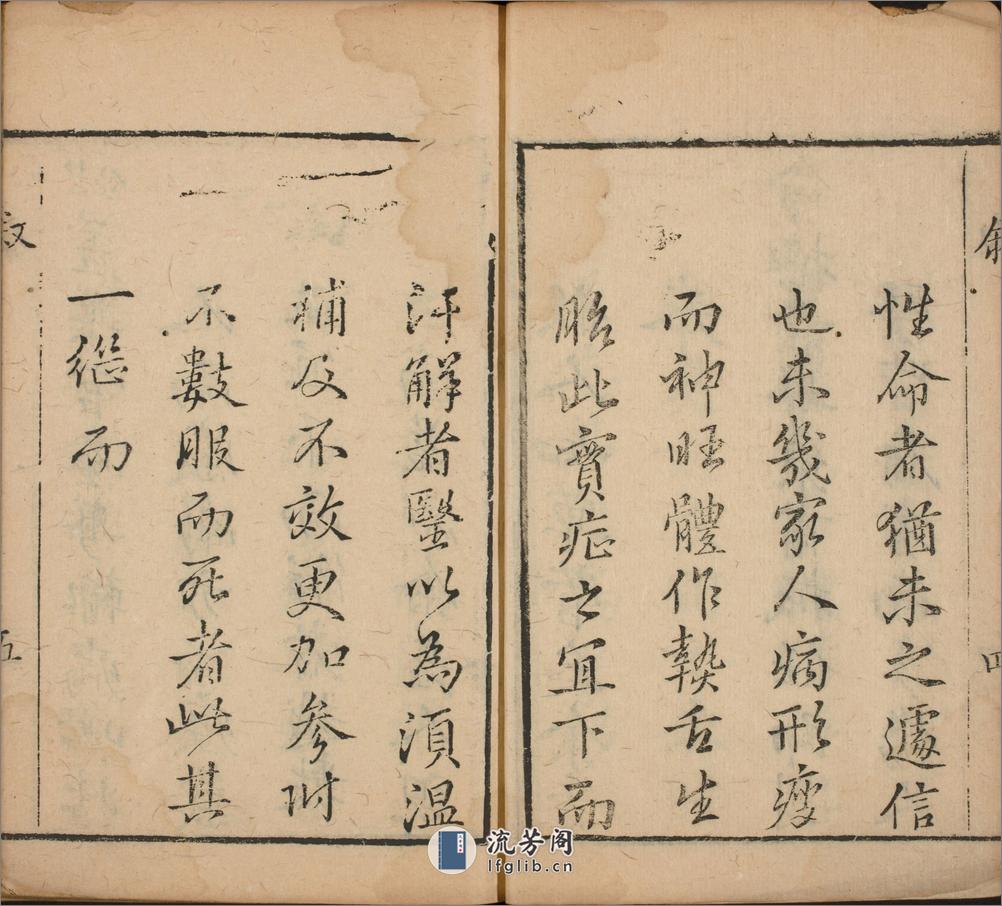 叙
四
性命者猶未之遽信
也未幾家人病形瘦
而神旺體作熱舌生
胎此實症之宜下而
汗解者毉以為須温
補及不效更加參附
不數服而死者此其
一繼而
叙
五
流芳阁
lfglib.cn